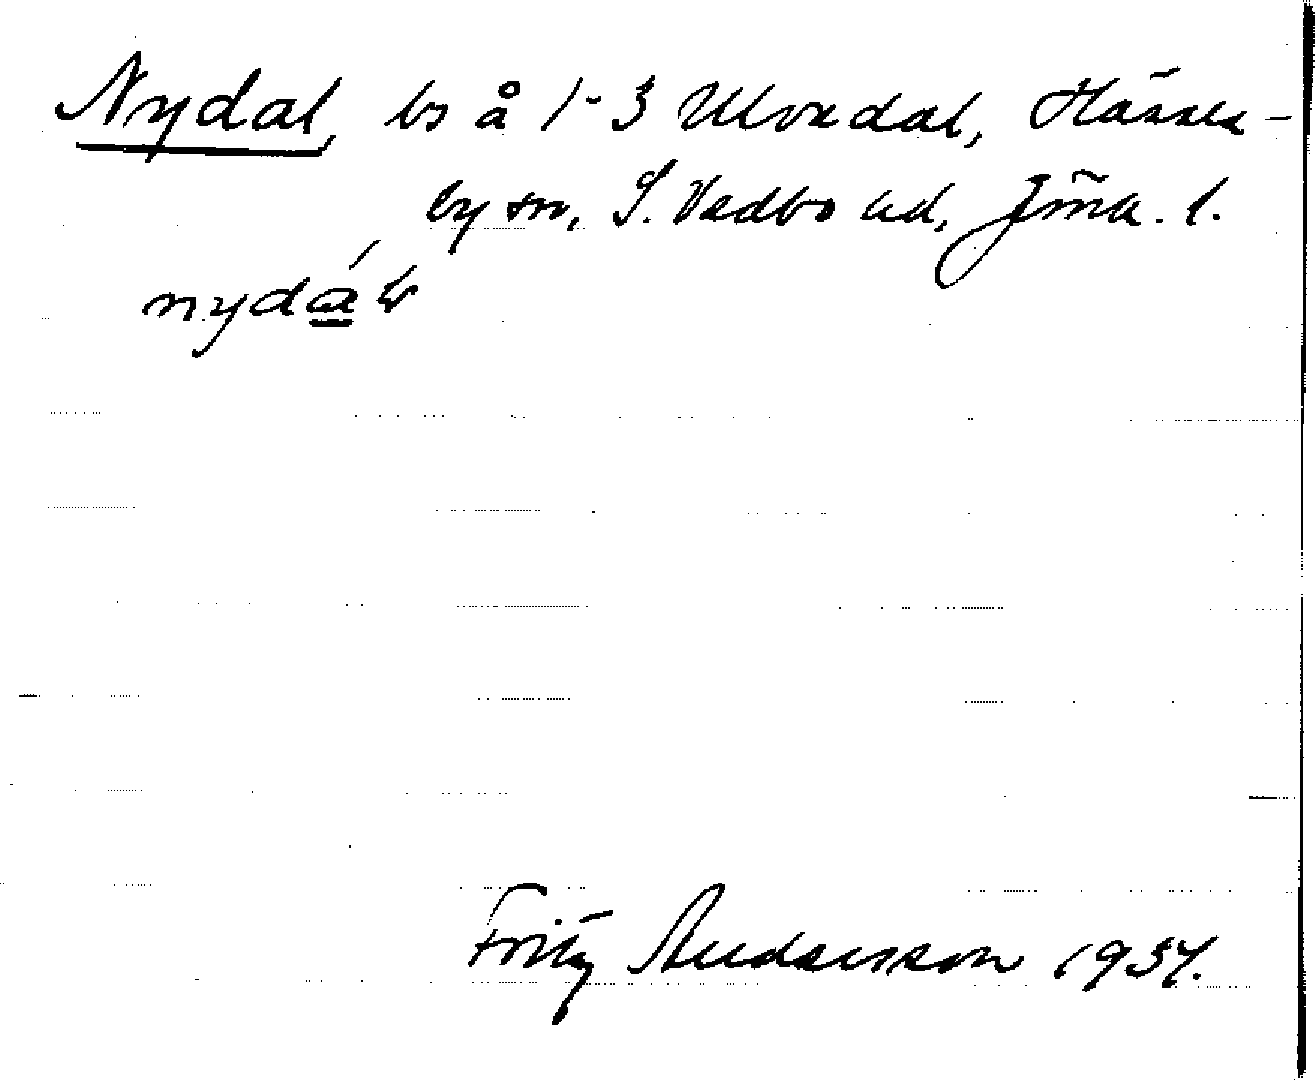 Nydal, bs å 1-3 Ulvedal, Hässle-
by sn, S. Vedbo hd, Jönk. l.
nydál
Fritz Andersson 1934.